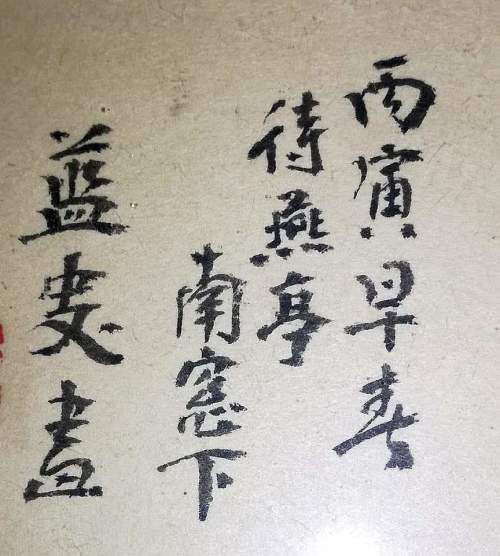 丙寅早春
待燕亭
南窓下
藍叟畫